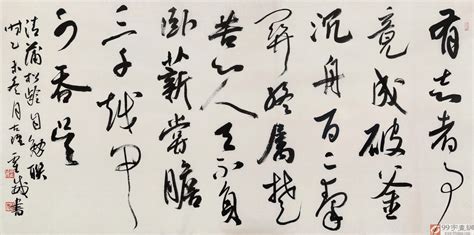 有志者事
竟成破釜
沉舟百二秦
关终属楚
苦心人天不負
卧薪嘗膽
三千越甲
可吞吴
清蒲松龄自勉联
时乙未冬月
書
99字画网